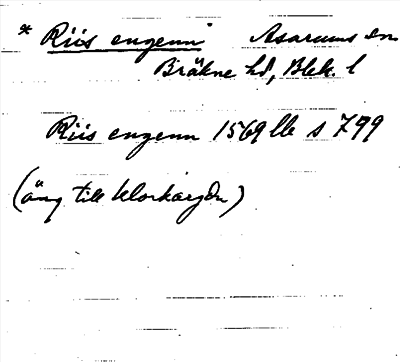 * Riis engenn Asarums sn
Bräkne hd, Blek. l
Riis engenn 1569 lle s 799
(äng till klockargdn)